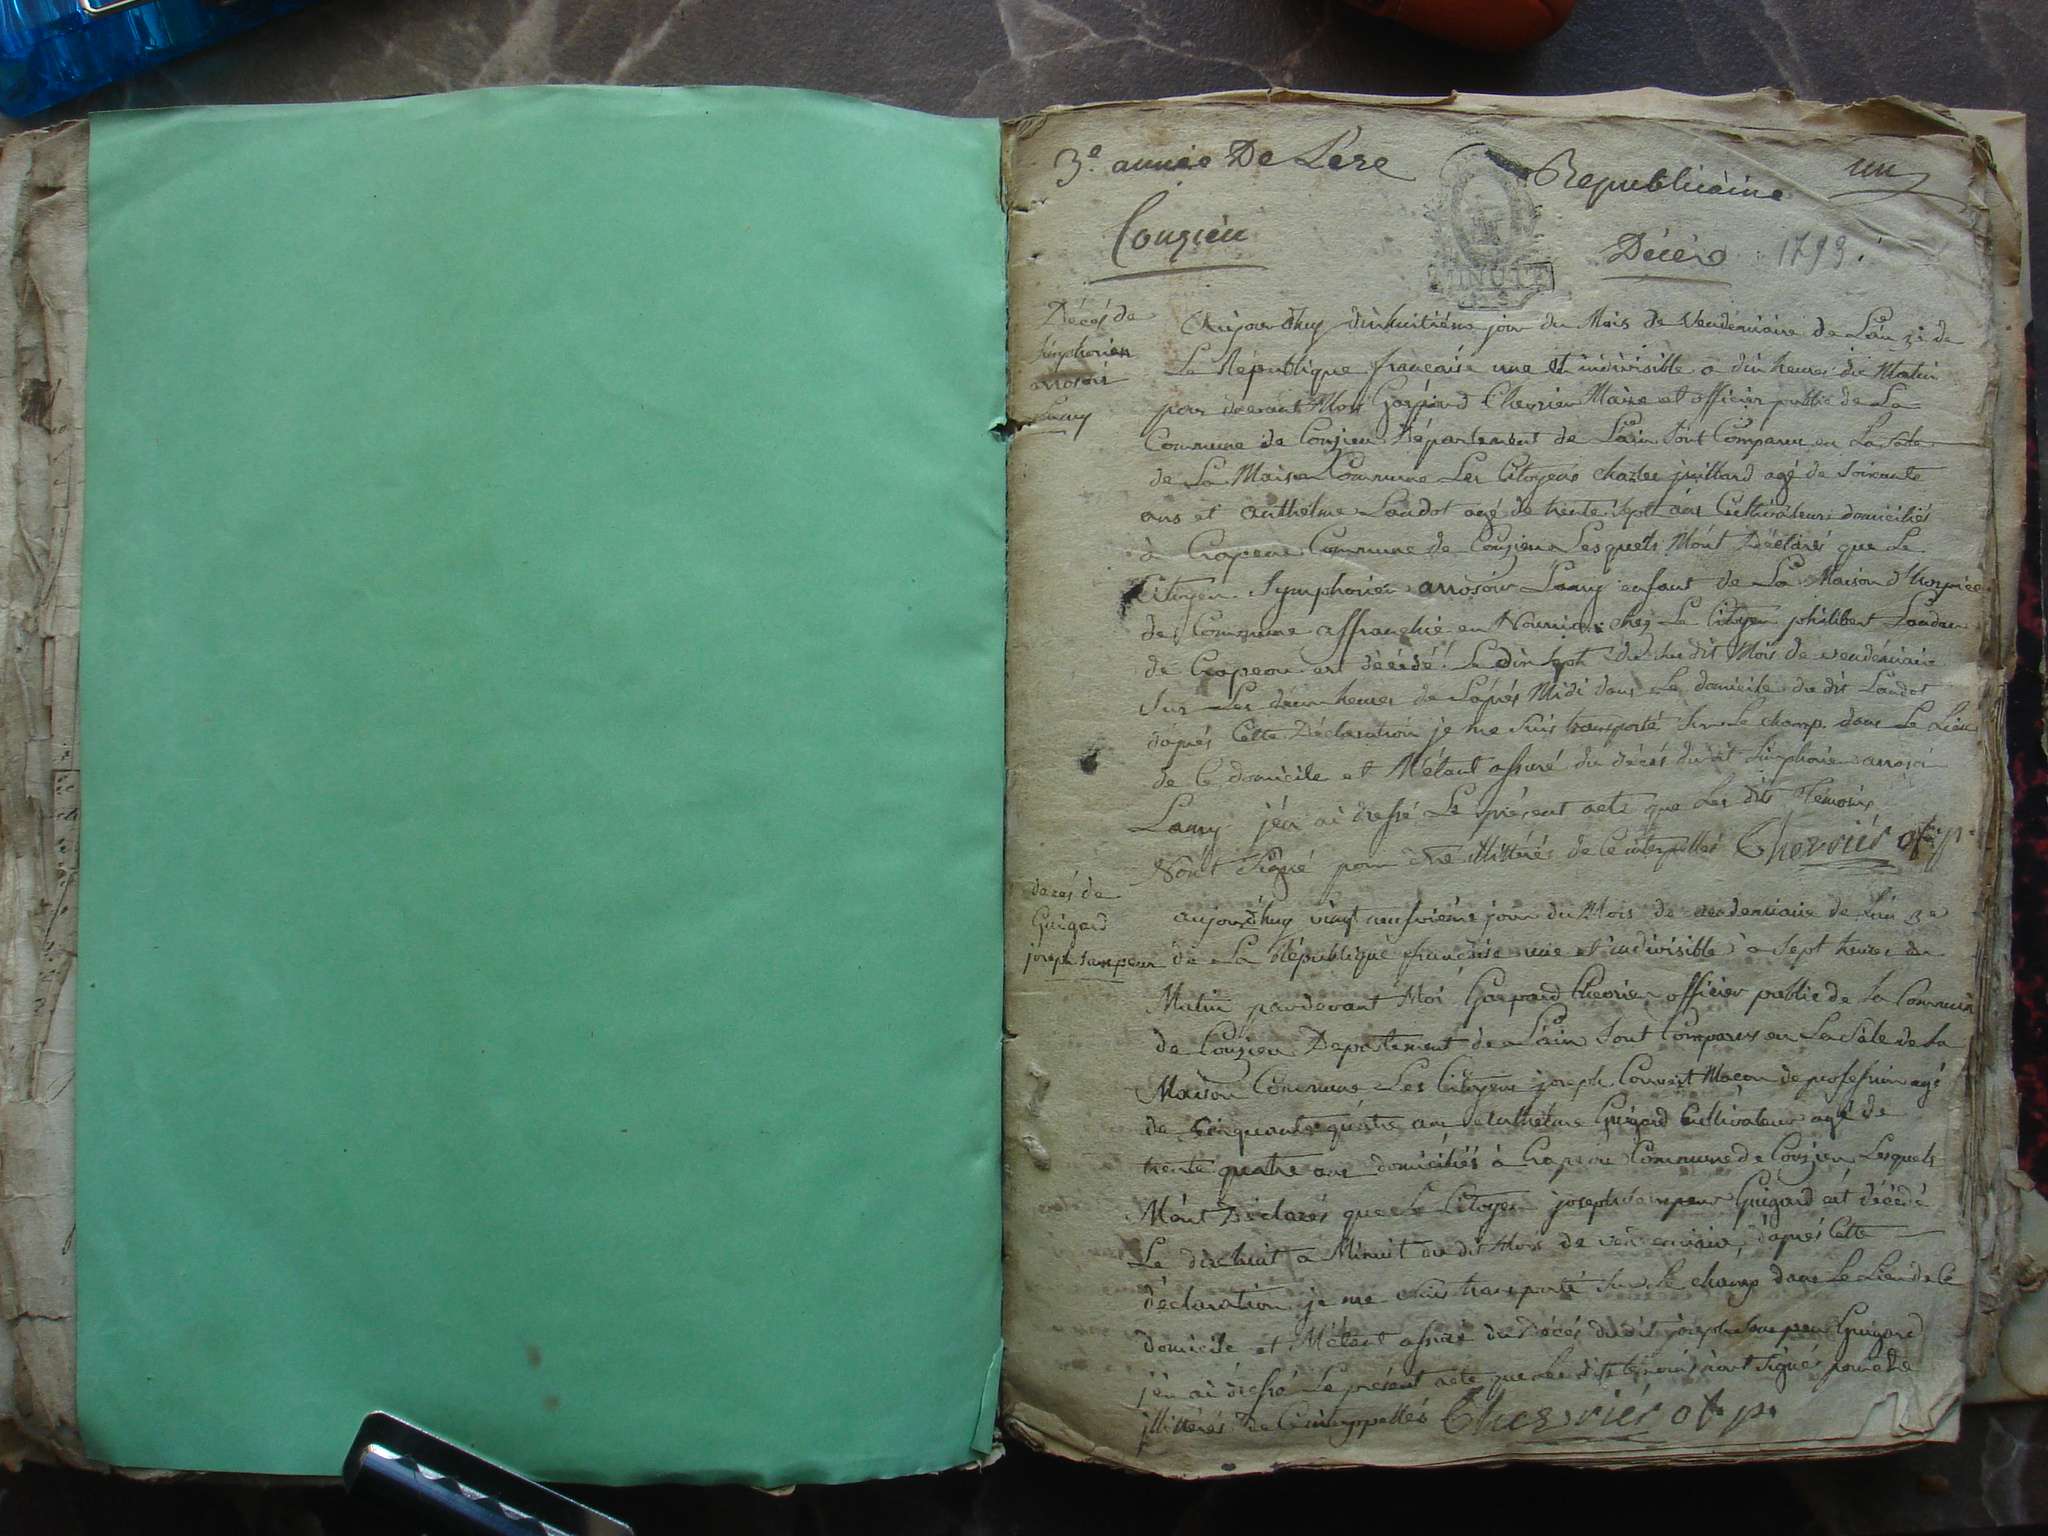 3e année De Lere Republicaine un
Conzieu Décès 1793
Décés de
Simphorien
arrosoir
Lamy
Aujourdhuy dixhuitiéme jour du Mois de Vendémiaire de L'an 3e de
La République française une et indivisible a dix heures du Matin
par devant Moi Gaspard Chevrier Maire et officier public de La
Commune de Conzieu Département de L'ain Sont Comparus en La Sale
de La Maison Commune Les Citoyens charles juillard agé de Soixante
ans et anthelme Landot agé de trente Sept ans Cultivateurs domiciliés
à Crapeou Commune de Conzieu Lesquels M'ont Déclarés que Le
Citoyen Symphorien arrosoir Lamy enfant de La Maison d'hospice
de Commune affranchie en Nourrice chez Le Citoyen philibert Landot
de Crapeou est décédé Le dix Sept du Susdit Mois de vendémiaire
Sur Les deux heures de L'aprés Midi dans Le domicile du dit Landot
d'aprés Cette Déclaration je me Suis transporté Sur Le champ dans Le Lieu
de Ce domicile et M'étant assuré du décés du dit Simphorien arrosoi
Lamy j'en ai dressé Le présent acte que Les dits Témoins
N'ont Signé pour être illittérés de Ce interpellés Chevrier of. p.
decés de
Guigard
joseph Sanpeur
aujourdhuy vingt neufviéme jour du Mois de vendemiaire de L'an 3e
de La République française une et indivisible a Sept heures du
Matin pardevant Moi Gaspard Chevrier officier public de La Commune
de Conzieu Departement de L'ain Sont Comparus en La Sale de La
Maison Commune Les Citoyens joseph Convert Maçon de profession agé
de Cinquante quatre ans et anthelme Guigard Cultivateur agé de
trente quatre ans domiciliés à Crapeou Commune de Conzieu Lesquels
M'ont Déclarés que Le Citoyen joseph Sanpeur Guigard est décédé
Le dix huit a Minuit du dit Mois de vendemiaire, d'aprés Cette
déclaration je me Suis transporté Sur Le champ dans Le Lieu de Ce
domicile et M'étant assuré du Décés du dit joseph Sanpeur Guigard
j'en ai dressé Le présent acte que Les dits témoins n'ont Signés pour être
illittérés de Ce interppellés Chevrier of. p.